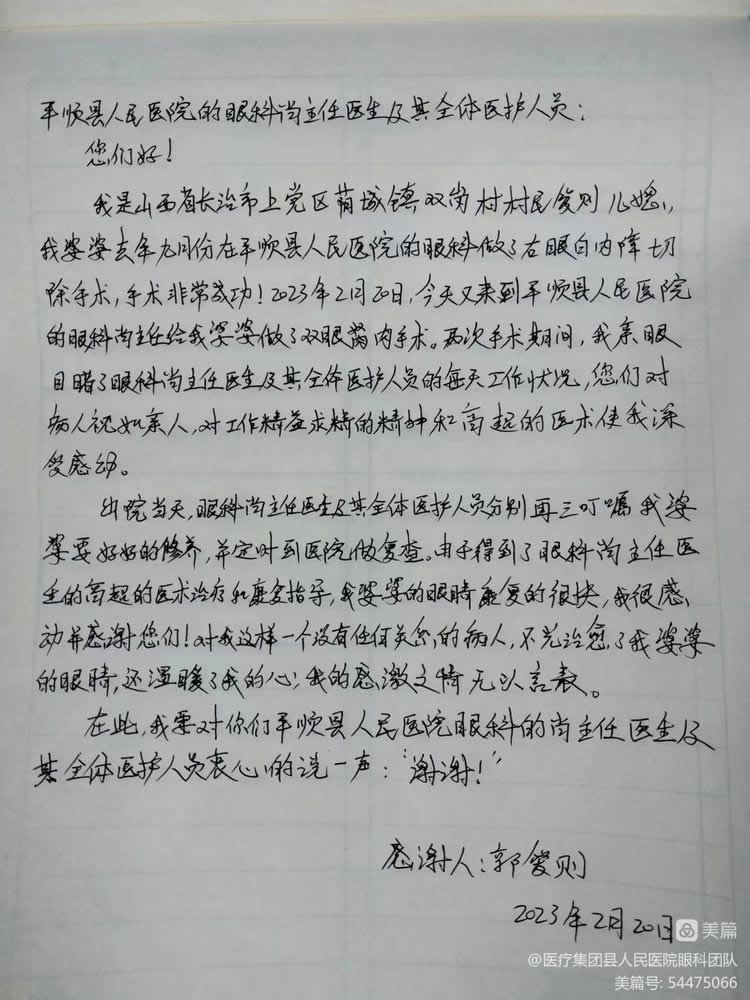 平顺县人民医院的眼科尚主任医生及其全体医护人员:
您们好!
我是山西省长治市上党区荫城镇双岗村村民爱则儿媳,
我婆婆去年九月份在平顺县人民医院的眼科做了右眼白内障切
除手术,手术非常成功!2023年2月20日,今天又来到平顺县人民医院
的眼科尚主任给我婆婆做了双眼 内手术。两次手术期间,我亲眼
目睹了眼科尚主任医生及其全体医护人员的每天工作状况,您们对
病人视如亲人,对工作精益求精的精神和高超的医术使我深
受感动。
出院当天,眼科尚主任医生及其全体医护人员分别再三叮嘱我婆
婆要好好的修养,并定时到医院做复查。由于得到了眼科尚主任医
生的高超的医术治疗和康复指导,我婆婆的眼睛康复的很快,我很感
动并感谢您们!对我这样一个没有任何关系的病人,不光治愈了我婆婆
的眼睛,还温暖了我的心,我的感激之情无以言表。
在此,我要对你们平顺县人民医院眼科的尚主任医生及
其全体医护人员衷心的说一声:“谢谢!”
感谢人:郭爱则
2023年2月20日
美篇
@医疗集团县人民医院眼科团队
美篇号: 54475066